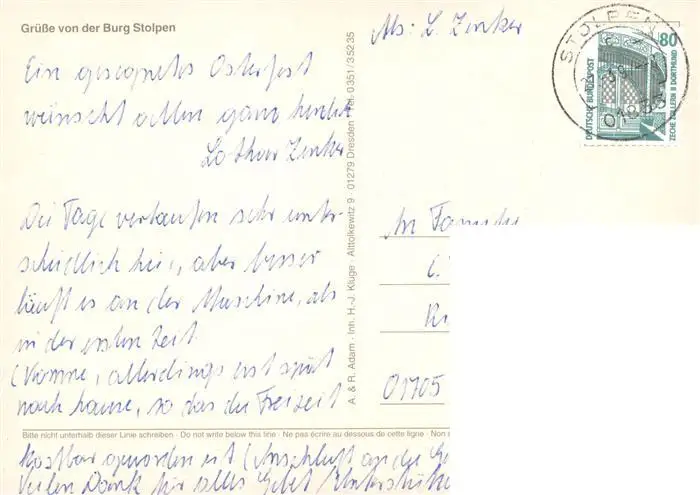 Grüße von der Burg Stolpen
Ein gesegnetes Osterfest
wünscht allen ganz herzlich
Lothar Zenker
Die Tage verlaufen sehr unter-
schiedlich hier, aber besser
läuft es an der Maschine, als
in der ersten Zeit
(Komme, allerdings erst spät
nach hause, so das die Freizeit
Bitte nicht unterhalb dieser Linie schreiben · Do not write below this line · Ne pas écrire au dessous de cette ligne · Non
kostbar geworden ist (Anschluß an die
Vielen Dank für alles Gebet/Unterstütz
A. & R. Adam · Inn. H.-J. Kluge · Alttolkewitz 9 · 01279 Dresden · Tel. 0 351 / 3 52 35
Abs: L. Zenker
STOLPEN
80
DEUTSCHE BUNDESPOST
ZECHE ZOLLERN II DORTMUND
An Familie
01705